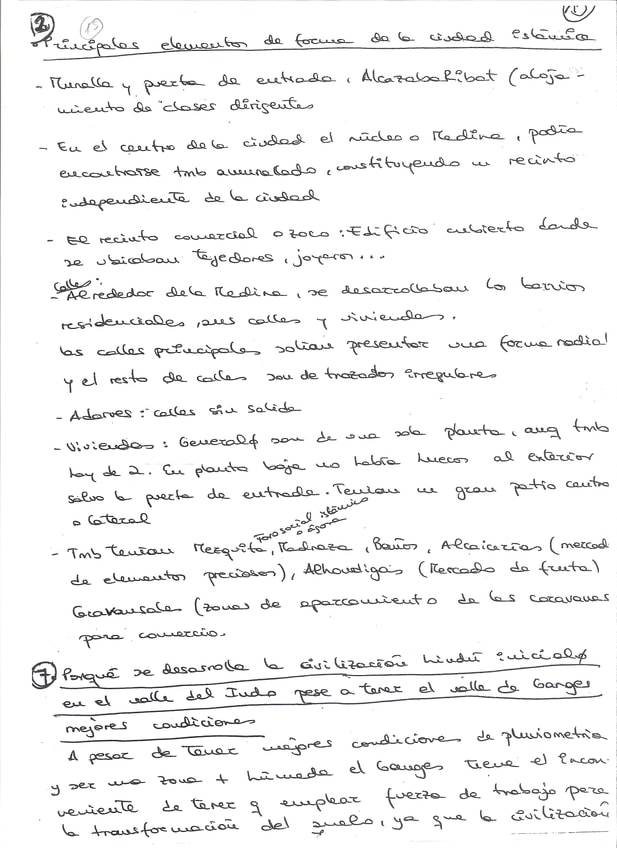 2 15 1
Principales elementos de forma de la ciudad islámica
- Muralla y puerta de entrada, Alcazaba Ribat (aloja-
miento de clases dirigentes
- En el centro de la ciudad el núcleo o Medina, podía
encontrarse tmb amurallado, constituyendo un recinto
independiente de la ciudad
- El recinto comercial o zoco: Edificio cubierto donde
se ubicaban tejedores, joyeros...
Calles:
- Alrededor de la Medina, se desarrollaban los barrios
residenciales, sus calles y viviendas.
Las calles principales solían presentar una forma radial
y el resto de calles son de trazados irregulares
- Adarves: calles sin salida
- Viviendas: General∮ son de una sola planta, aunq tmb
hay de 2. En planta baja no había huecos al exterior
salvo la puerta de entrada. Tenían un gran patio centro
o lateral
Foro social islámico
o ágora
- Tmb tenían Mezquita, Madraza, Baños, Alcaicerías (mercad
de elementos preciosos), Alhondigas (Mercado de fruta)
Caravansale (zonas de aparcamiento de las caravanas
para comercio.
7. Porqué se desarrolla la civilización hindú inicial∮
en el valle del Indo pese a tener el valle de Ganges
mejores condiciones
A pesar de tener mejores condiciones de pluviometría
y ser una zona + húmeda el Ganges tiene el incon-
veniente de tener q emplear fuerza de trabajo para
la transformación del suelo, ya que la civilización